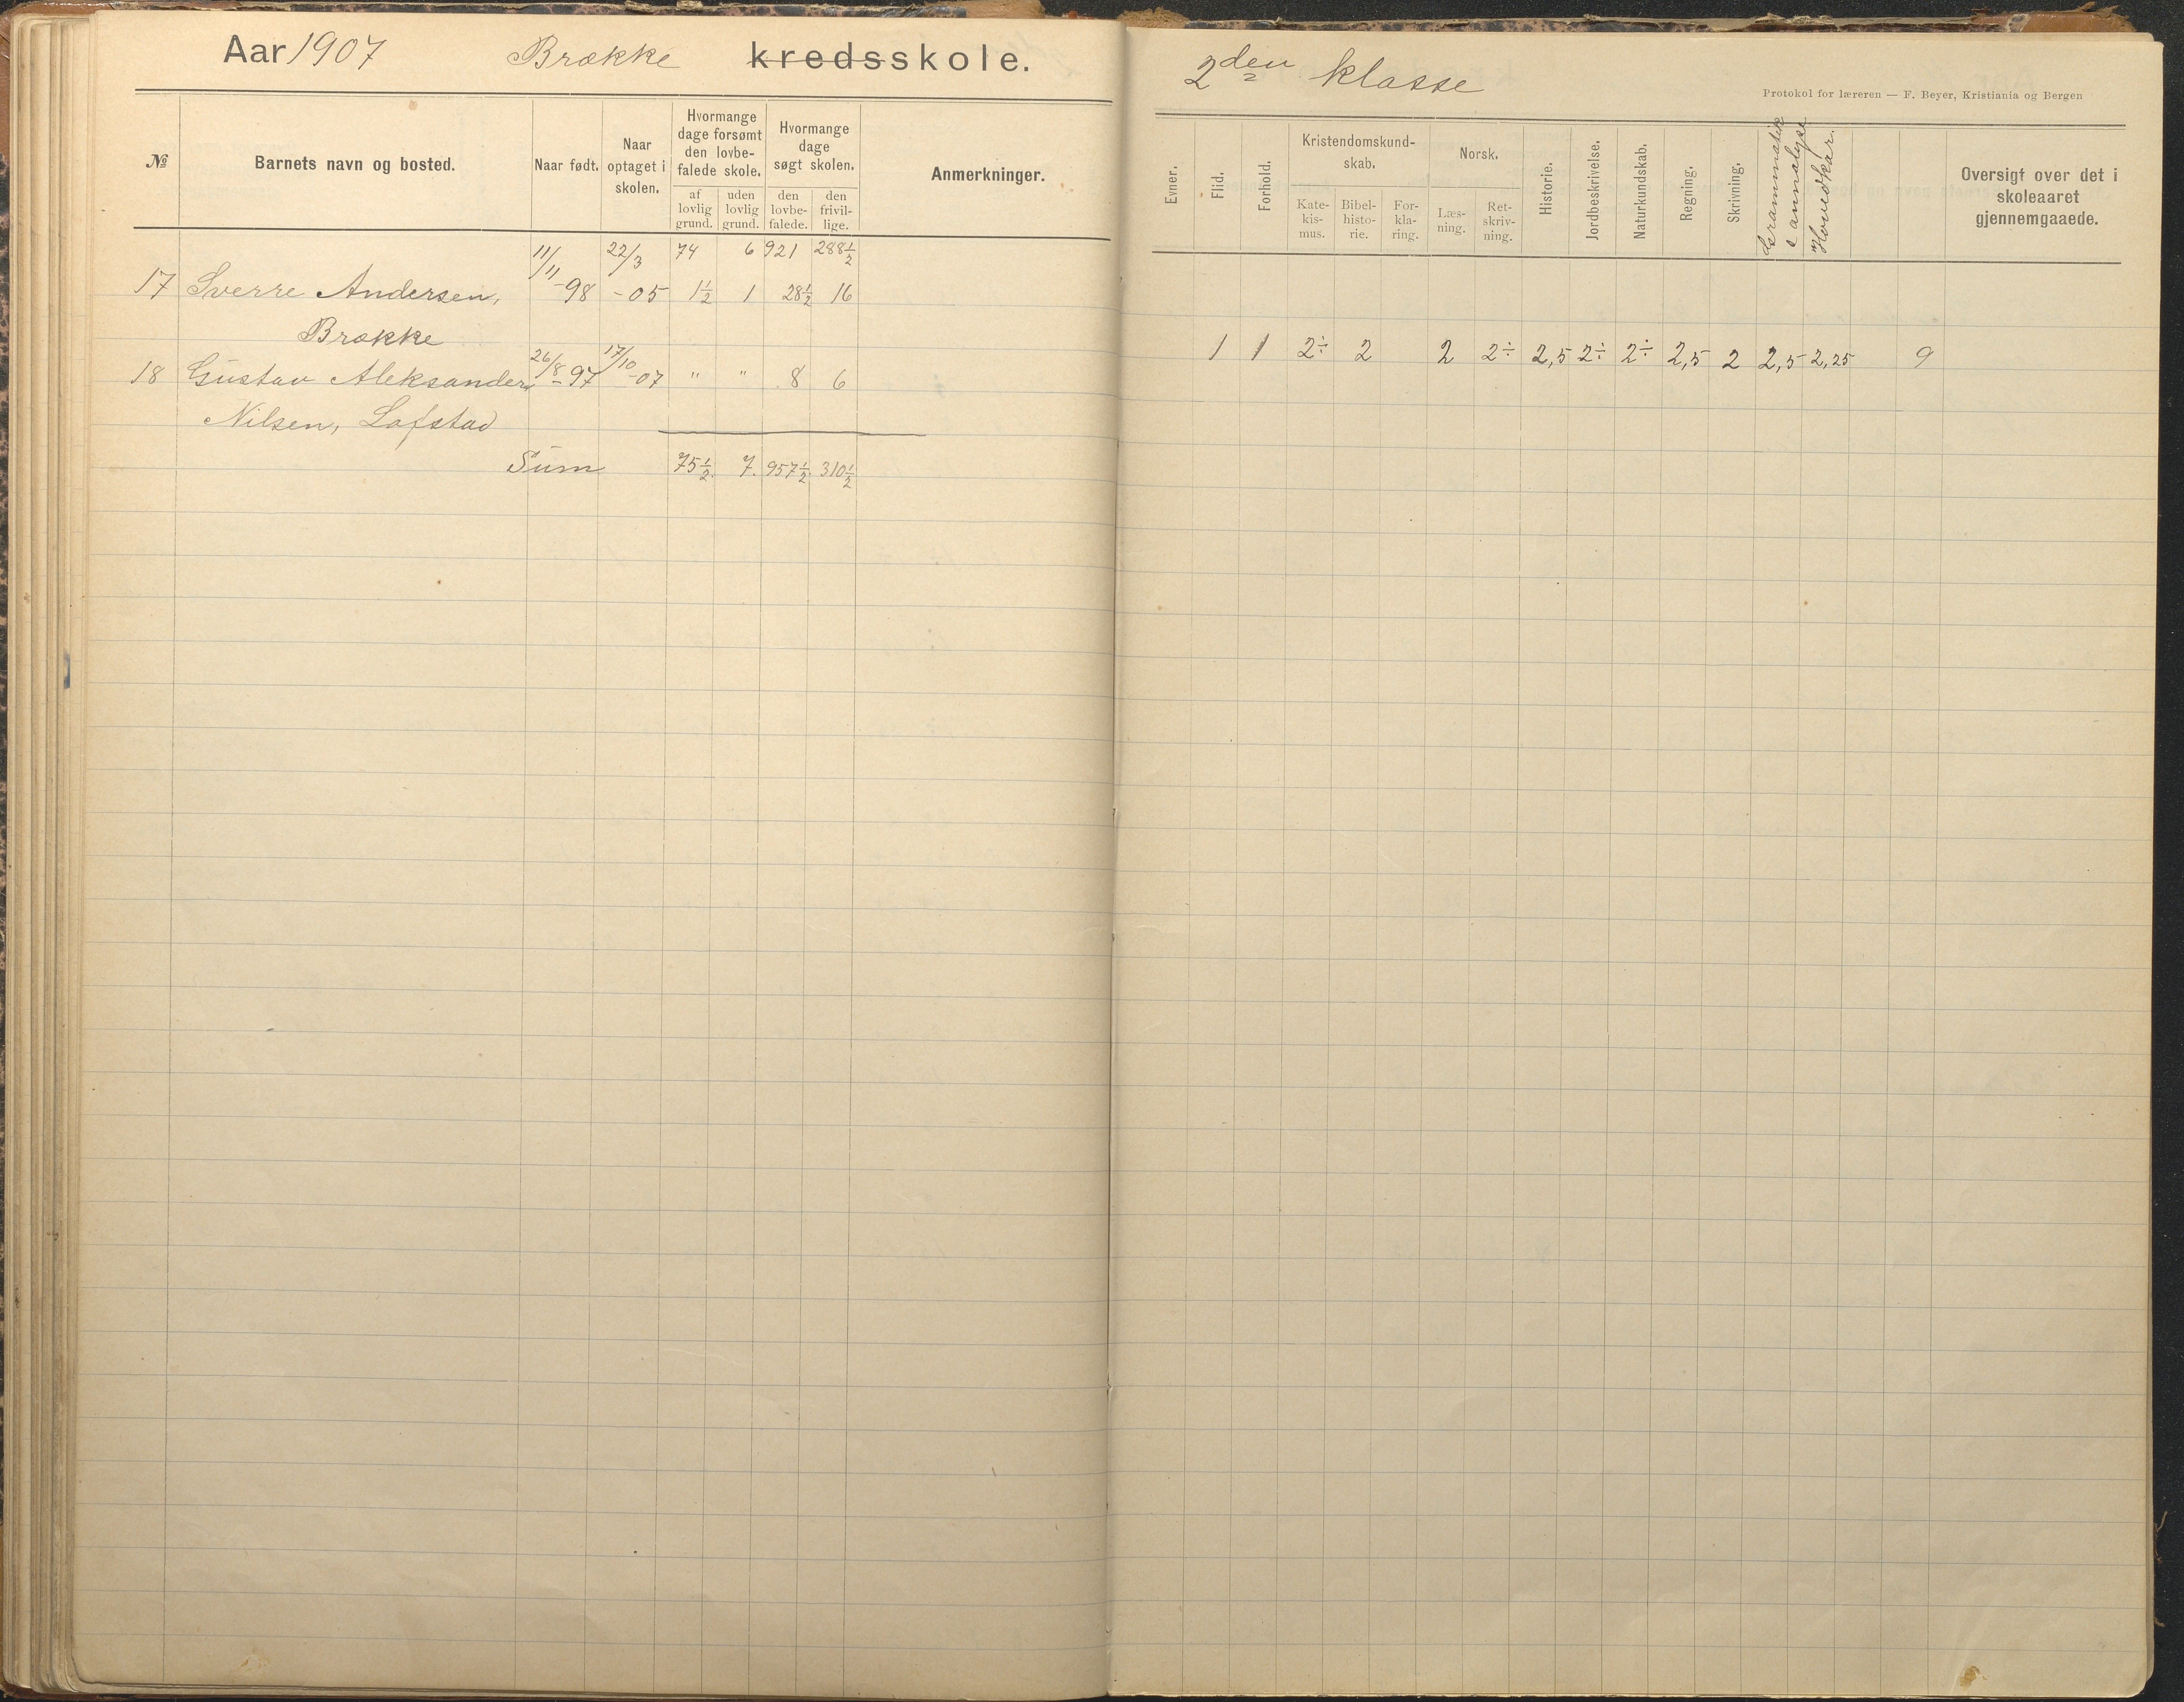 Aar 1907 Brække kredsskole.
2den klasse
Protokol for læreren — F. Beyer, Kristiania og Bergen
№ Barnets navn og bosted. Naar født. Naar optaget i skolen. Hvormange dage forsømt den lovbefalede skole. af lovlig grund. uden lovlig grund. Hvormange dage søgt skolen. den lovbefalede. den frivillige. Anmerkninger.
Evner. Flid. Forhold. Kristendomskundskab. Katekismus. Bibelhistorie. Forklaring. Norsk. Læsning. Retskrivning. Historie. Jordbeskrivelse. Naturkundskab. Regning. Skrivning. Grammatik & analyse Hovedkar. Oversigt over det i skoleaaret gjennemgaaede.
11/11 22/3 74 6 921 288½
17 Sverre Andersen, -98 -05 1½ 1 28½ 16
Brække
1 1 2÷ 2 2 2÷ 2,5 2÷ 2÷ 2,5 2 2,5 2,25 9
18 Gustav Aleksander 26/8-97 17/10-07 " " 8 6
Nilsen, Lofstad
Sum 75½ 7. 957½ 310½